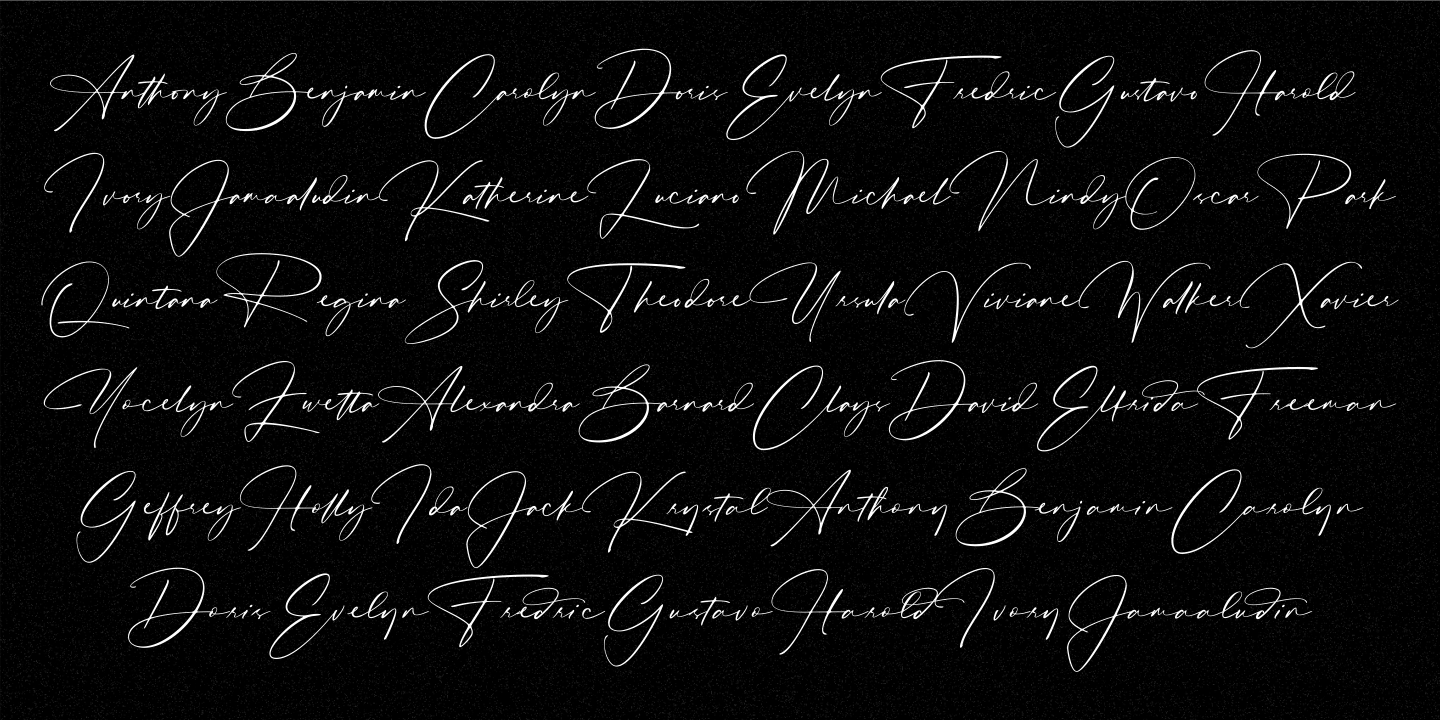 Anthony Benjamin Carolyn Doris Evelyn Fredric Gustavo Harold
Ivory Jamaaludin Katherine Luciano Michael Nindy Oscar Park
Quintana Regina Shirley Theodore Ursula Viviane Walker Xavier
Yocelyn Zwetta Alexandra Barnard Clays David Elfrida Freeman
Geffrey Holly Ida Jack Krystal Anthony Benjamin Carolyn
Doris Evelyn Fredric Gustavo Harold Ivory Jamaaludin